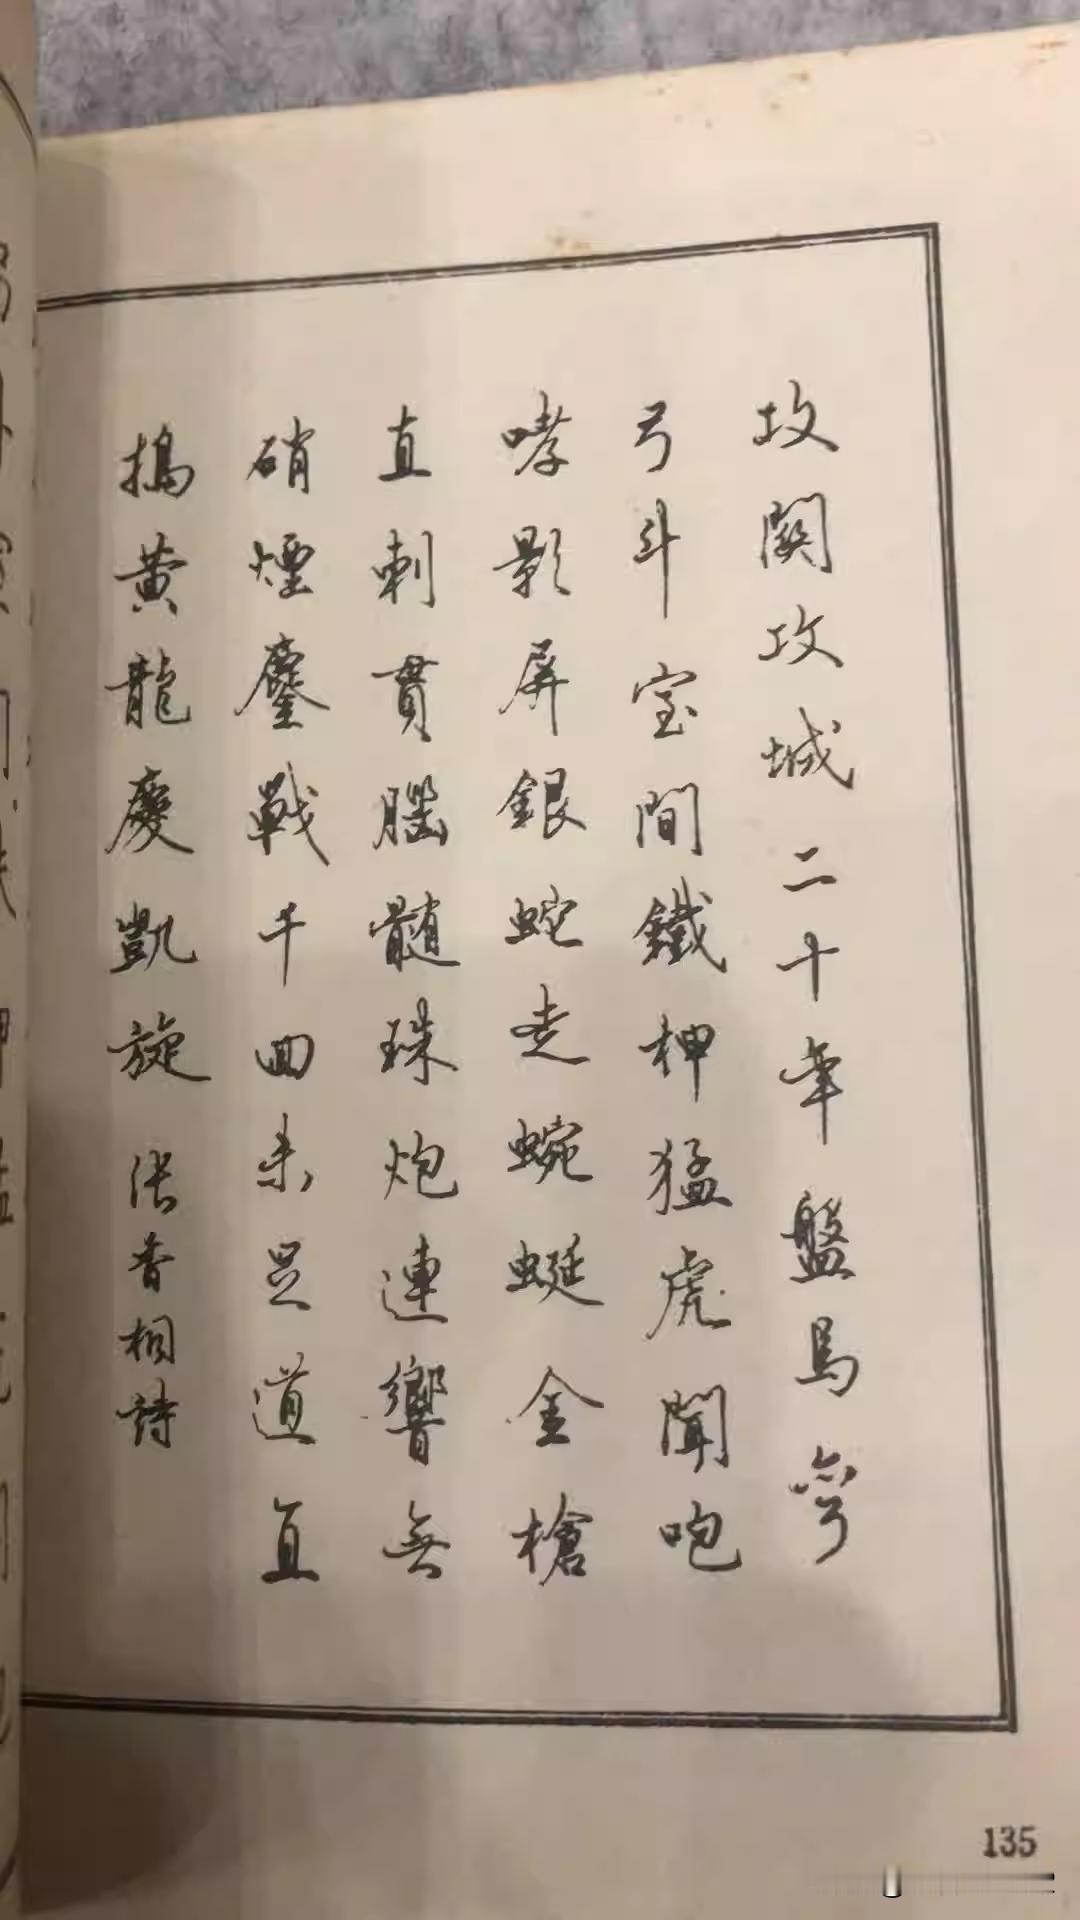 攻關攻城二十年盤馬彎
弓斗室間鐵柙猛虎聞咆
哮影屏銀蛇走蜿蜒金槍
直刺貫腦髓珠炮連響無
硝煙鏖戰千回未足道直
搗黃龍慶凱旋 張香相詩
135